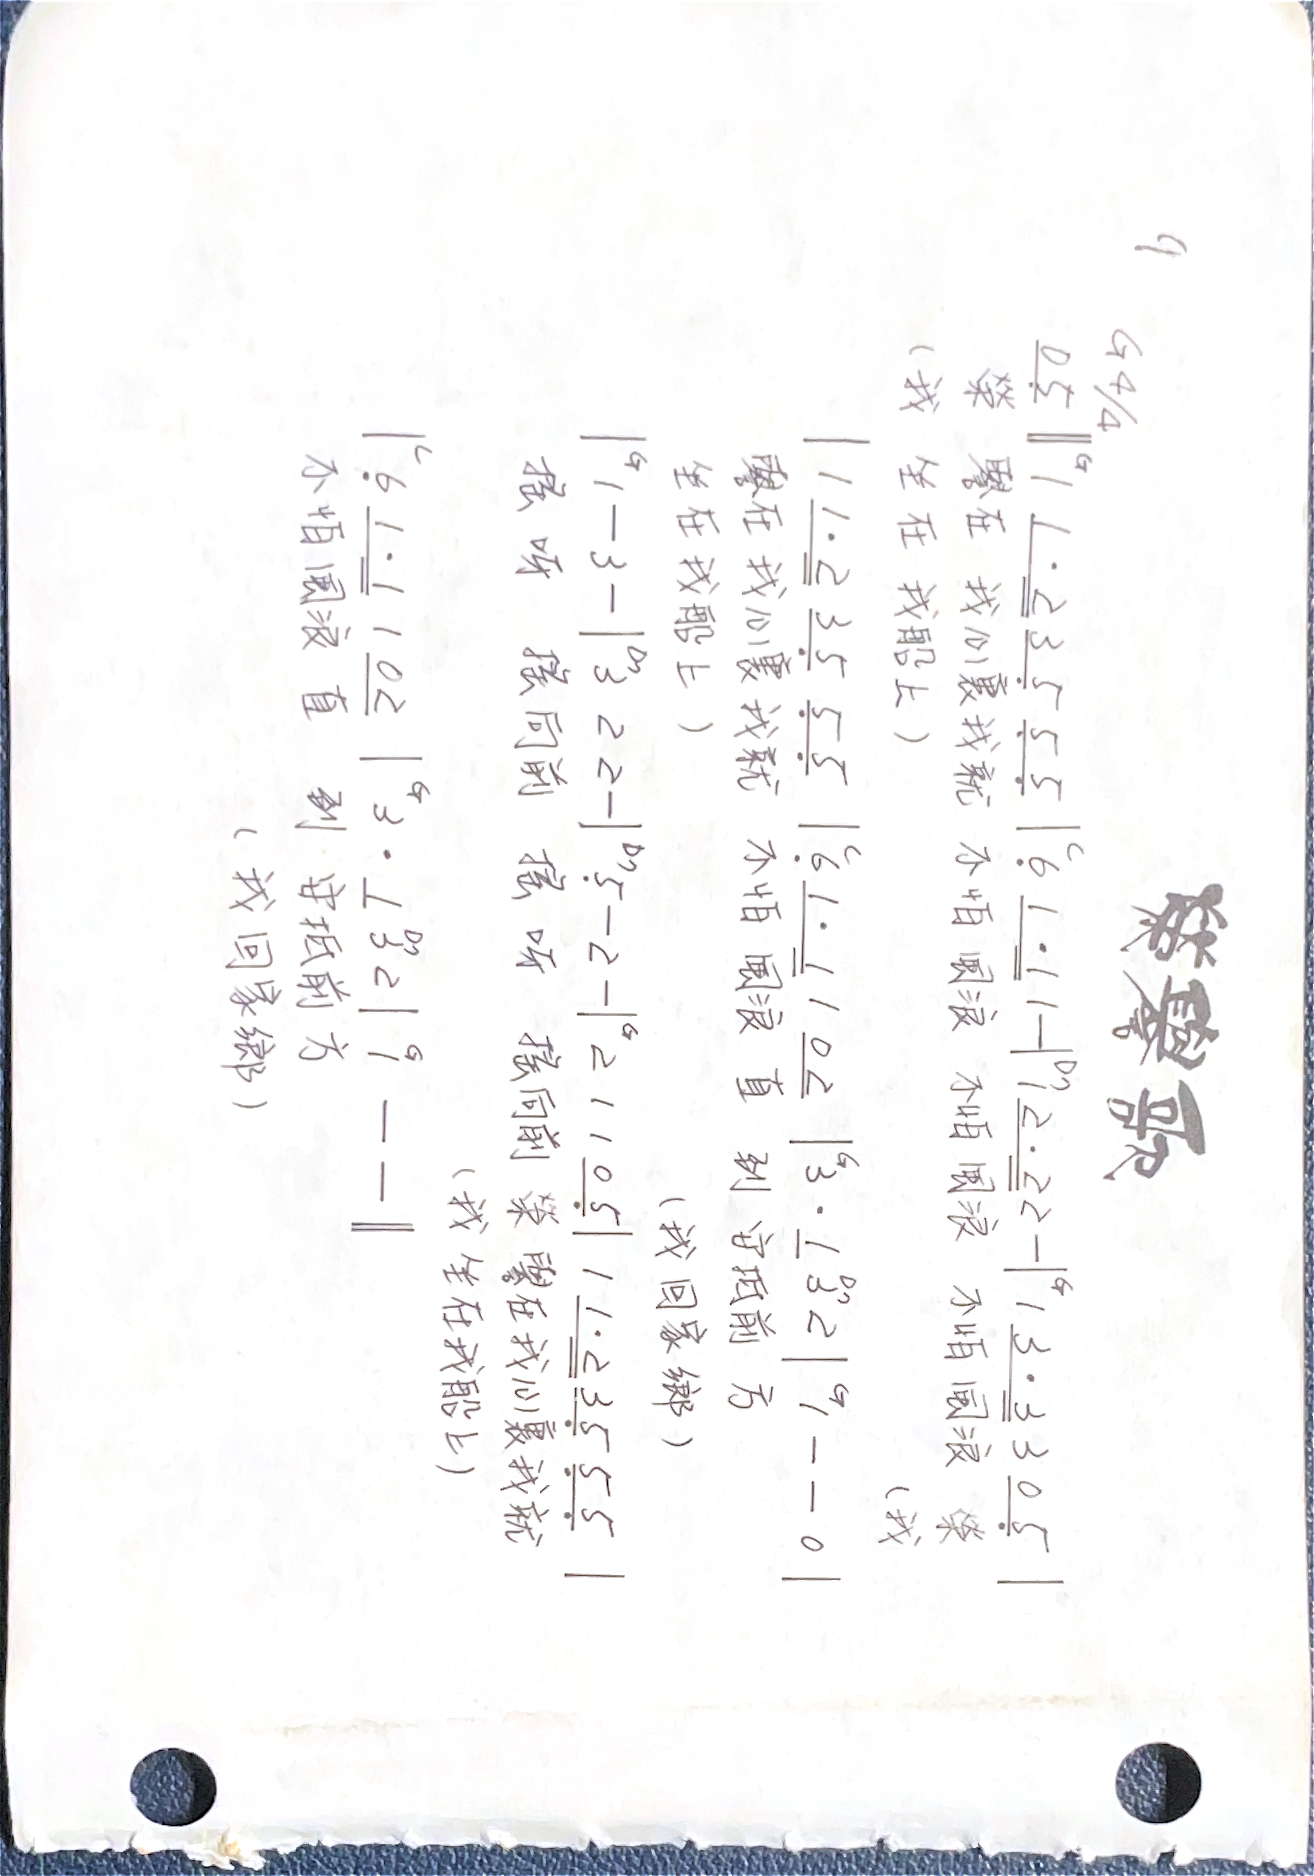 榮譽歌
9
G 4/4
0 5 ‖ G 1 1 · 2 3 5 5 5 | C 6 1 · 1 1 — | D7 1 2 · 2 2 — | G 1 3 · 3 3 0 5 |
榮 譽在 我心裏我就 不怕風浪 不怕風浪 不怕風浪 榮
(我 坐在 我船上) (我
| 1 1 · 2 3 5 5 5 | C 6 1 · 1 1 0 2 | G 3 · 1 D7 3 2 | G 1 — — 0 |
譽在我心裏我就 不怕風浪 直 到 安抵前方
坐在我船上) (我回家鄉)
| G 1 — 3 — | D7 3 2 2 — | D7 5 — 2 — | G 2 1 1 0 5 | 1 1 · 2 3 5 5 5 |
搖呀 搖向前 搖呀 搖向前 榮 譽在我心裏我就
(我 坐在我船上)
| C 6 1 · 1 1 0 2 | G 3 · 1 D7 3 2 | G 1 — — ‖
不怕風浪 直 到 安抵前方
(我回家鄉)